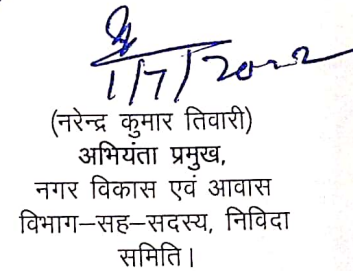 1/7/2022
(नरेन्द्र कुमार तिवारी)
अभियंता प्रमुख,
नगर विकास एवं आवास
विभाग–सह–सदस्य, निविदा
समिति।